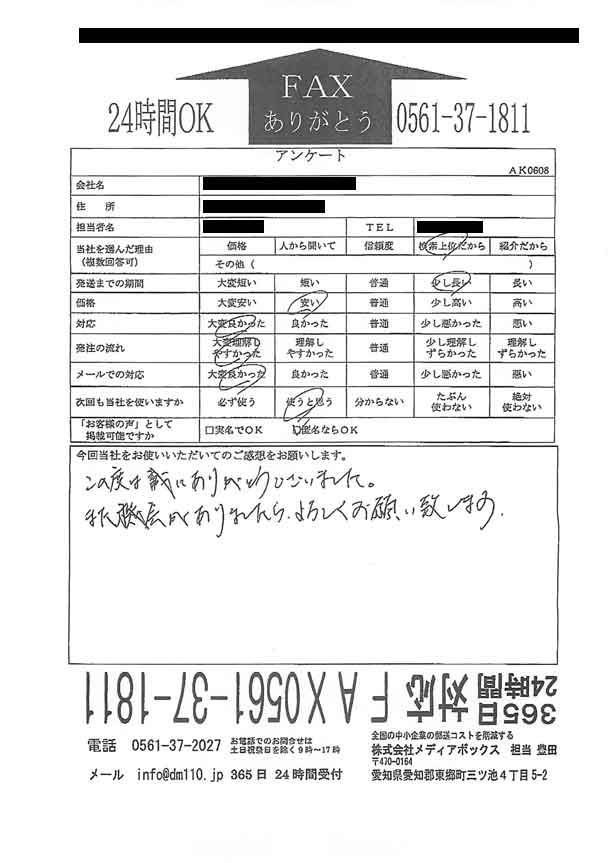 FAX
ありがとう
24時間OK
0561-37-1811
アンケート
AK0608
会社名
住　所
担当者名 TEL
当社を選んだ理由
(複数回答可)
価格 人から聞いて 信頼度 検索上位だから 紹介だから
その他 ( )
発送までの期間 大変短い 短い 普通 少し長い 長い
価格 大変安い 安い 普通 少し高い 高い
対応 大変良かった 良かった 普通 少し悪かった 悪い
発注の流れ 大変理解しやすかった 理解しやすかった 普通 少し理解しずらかった 理解しずらかった
メールでの対応 大変良かった 良かった 普通 少し悪かった 悪い
次回も当社を使いますか 必ず使う 使うと思う 分からない たぶん使わない 絶対使わない
「お客様の声」として
掲載可能ですか
□実名でOK □匿名ならOK
今回当社をお使いいただいてのご感想をお願いします。
この度は誠にありがとうございました。
また機会がありましたら、よろしくお願い致します。
365日24時間対応 FAX0561-37-1811
電話 0561-37-2027 お電話でのお問合せは
土日祝祭日を除く9時～17時
メール info@dm110.jp 365日 24時間受付
全国の中小企業の郵送コストを削減する
株式会社メディアボックス 担当 豊田
〒470-0164
愛知県愛知郡東郷町三ツ池4丁目5-2